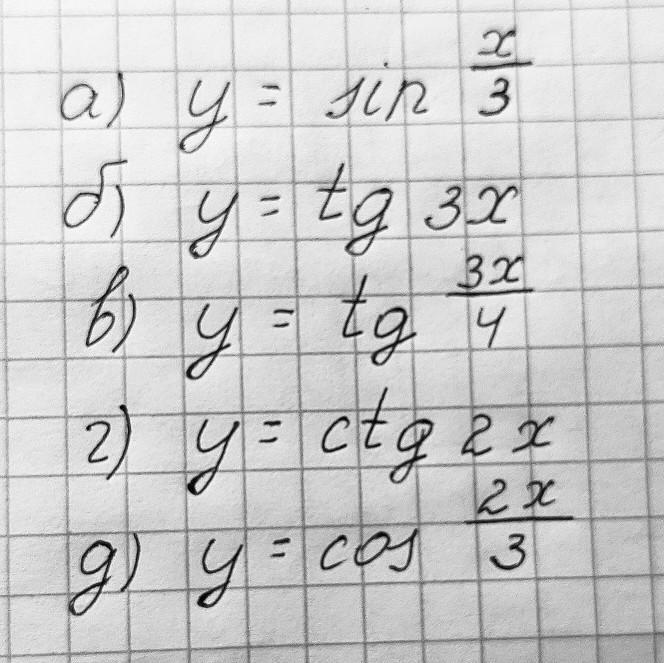 а) y = sin x/3
б) y = tg 3x
в) y = tg 3x/4
г) y = ctg 2x
д) y = cos 2x/3